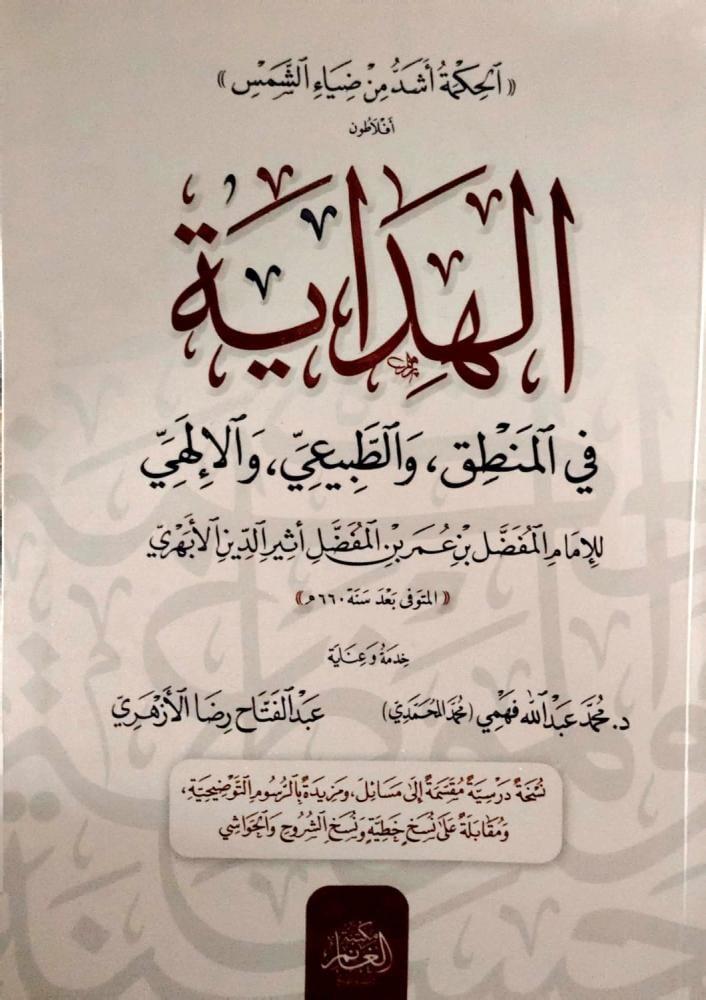 «الحِكْمَةُ أَشَدُّ مِنْ ضِيَاءِ الشَّمْسِ»
أفلاطون
الهِدَايَة
في المَنْطِقِ، وَالطَّبِيعِيِّ، وَالإِلَهِيِّ
للإِمَامِ المُفَضَّل بْنِ عُمَرَ بْنِ المُفَضَّلِ أَثِيرِ الدِّينِ الأَبْهَرِيّ
«المتوفى بَعدَ سَنَة ٦٦٠هـ»
خِدمَةُ وَعِنَايَة
د. مُحَمَّد عَبْدُ اللَّه فَهْمِي (مُحَمَّد المُحَمَّدِي)
عَبْدُ الفَتَّاح رِضَا الأَزْهَرِيّ
نُسْخَةٌ دَرسِيَّةٌ مُقَسَّمَةٌ إلَى مَسَائِلَ، وَمَزِيدَةٌ بِالرُّسُومِ التَّوْضِيحِيَّةِ،
وَمُقَابَلَةٌ عَلَى نُسَخٍ خَطِّيَّةٍ وَنُسَخِ الشُّرُوحِ وَالحَوَاشِي
مكتبة
الغانم